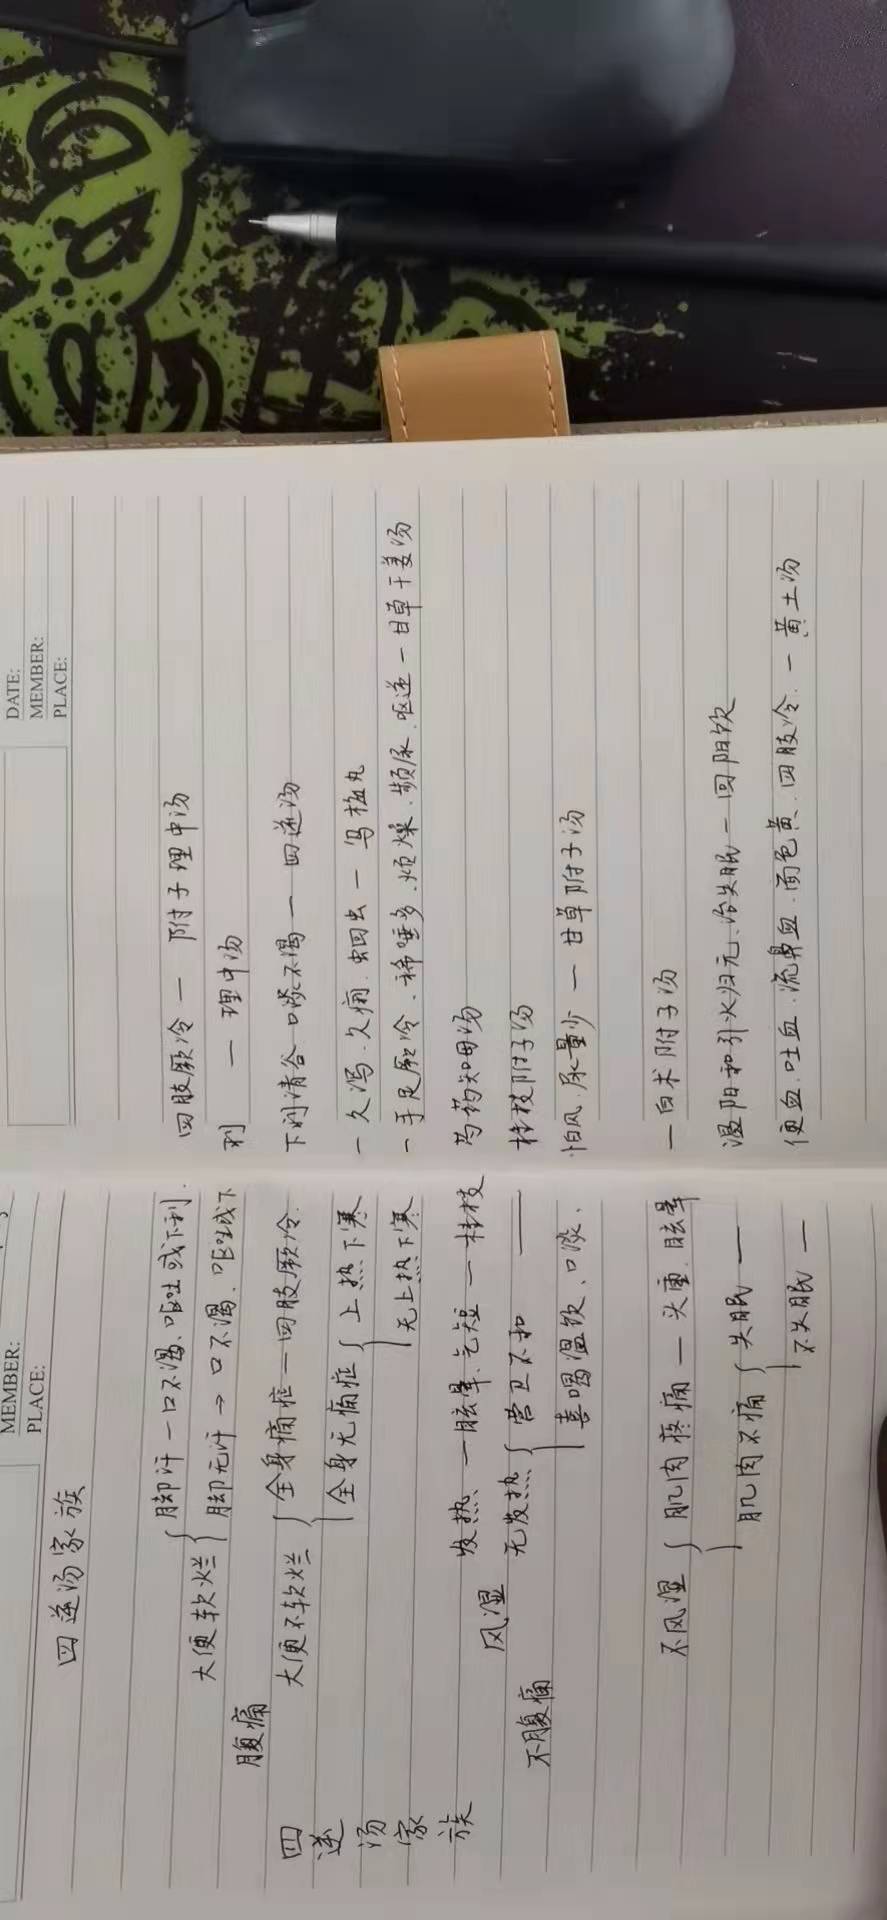 MEMBER:
PLACE:
DATE:
MEMBER:
PLACE:
四逆汤家族
四逆汤家族
腹痛
大便软烂
脚汗一口不渴、呕吐或下利. 四肢厥冷一 附子理中汤
脚无汗→口不渴、呕吐或下利 一 理中汤
大便不软烂
全身痛症一四肢厥冷. 下利清谷 口淡不渴一 四逆汤
全身无痛症
上热下寒 一久泻.久痢.蛔虫一乌梅丸
无上热下寒 一手足厥冷、稀唾多.烦燥.频尿.呕逆一甘草干姜汤
不腹痛
风湿
发热、一眩晕、气短一桂枝芍药知母汤
无发热
营卫不和 —— 桂枝附子汤
喜喝温饮、口淡、怕风.尿量少 一 甘草附子汤
不风湿
肌肉疼痛一头重.眩晕 一白术附子汤
肌肉不痛
失眠 一 温阳和引火归元、治失眠一回阳饮
不失眠 一 便血.吐血.流鼻血.面色黄.四肢冷.一黄土汤